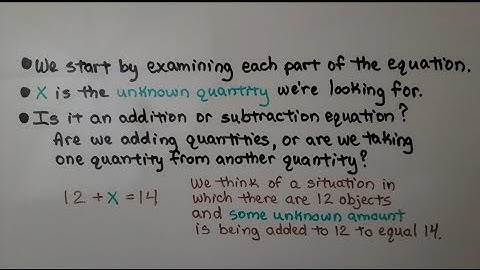 • We start by examining each part of the equation.
• X is the unknown quantity we're looking for.
• Is it an addition or subtraction equation?
Are we adding quantities, or are we taking
one quantity from another quantity?
12 + X = 14
We think of a situation in
which there are 12 objects
and some unknown amount
is being added to 12 to equal 14.